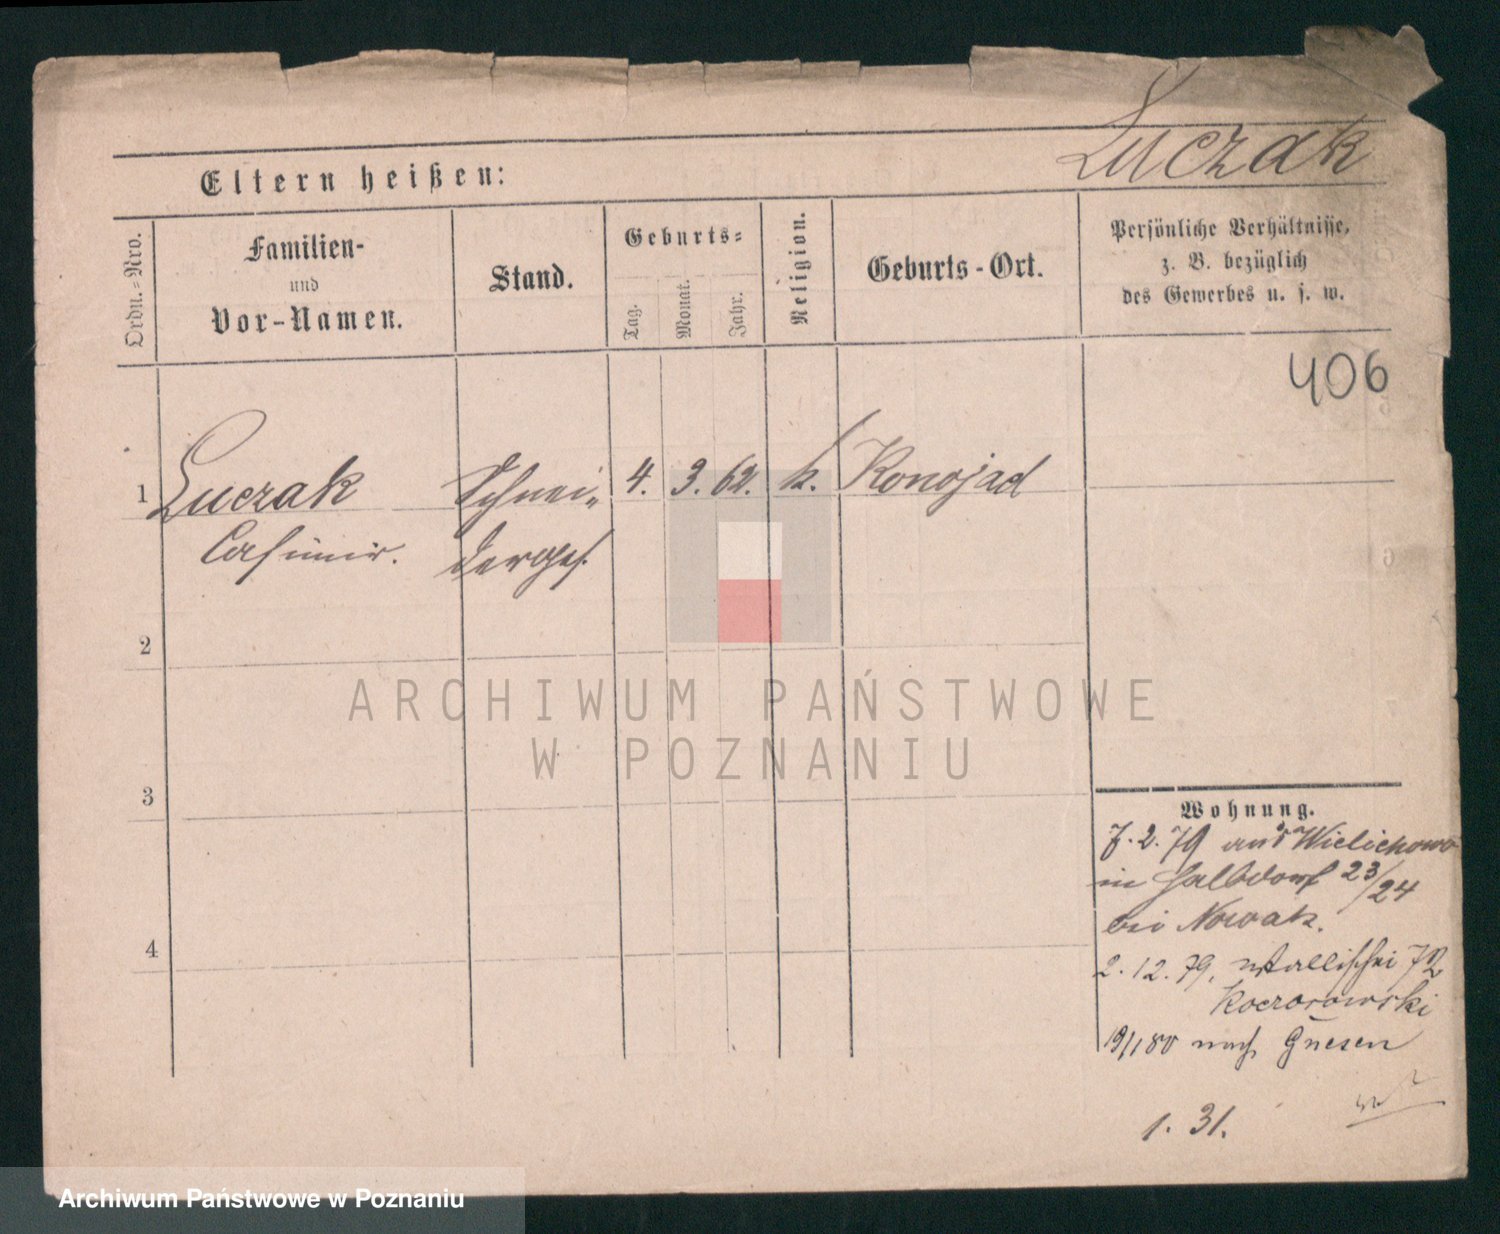 Luczak
Eltern heißen:
Ordn.-Nro.
Familien-
und
Vor-Namen.
Stand.
Geburts-
Tag.
Monat.
Jahr.
Religion.
Geburts-Ort.
Persönliche Verhältnisse,
z. B. bezüglich
des Gewerbes u. s. w.
406
1 Luczak Schnei- 4. 3. 62. k. Konojad
Casimir. derges.
2
3
4
Wohnung.
7. 2. 79 aus Wielichowo
in Halbdorf 23/24
bei Nowak.
2. 12. 79. Wallischei 72
Koczorowski
19/1 80 nach Gnesen
1. 31.
ARCHIWUM PAŃSTWOWE
W POZNANIU
Archiwum Państwowe w Poznaniu